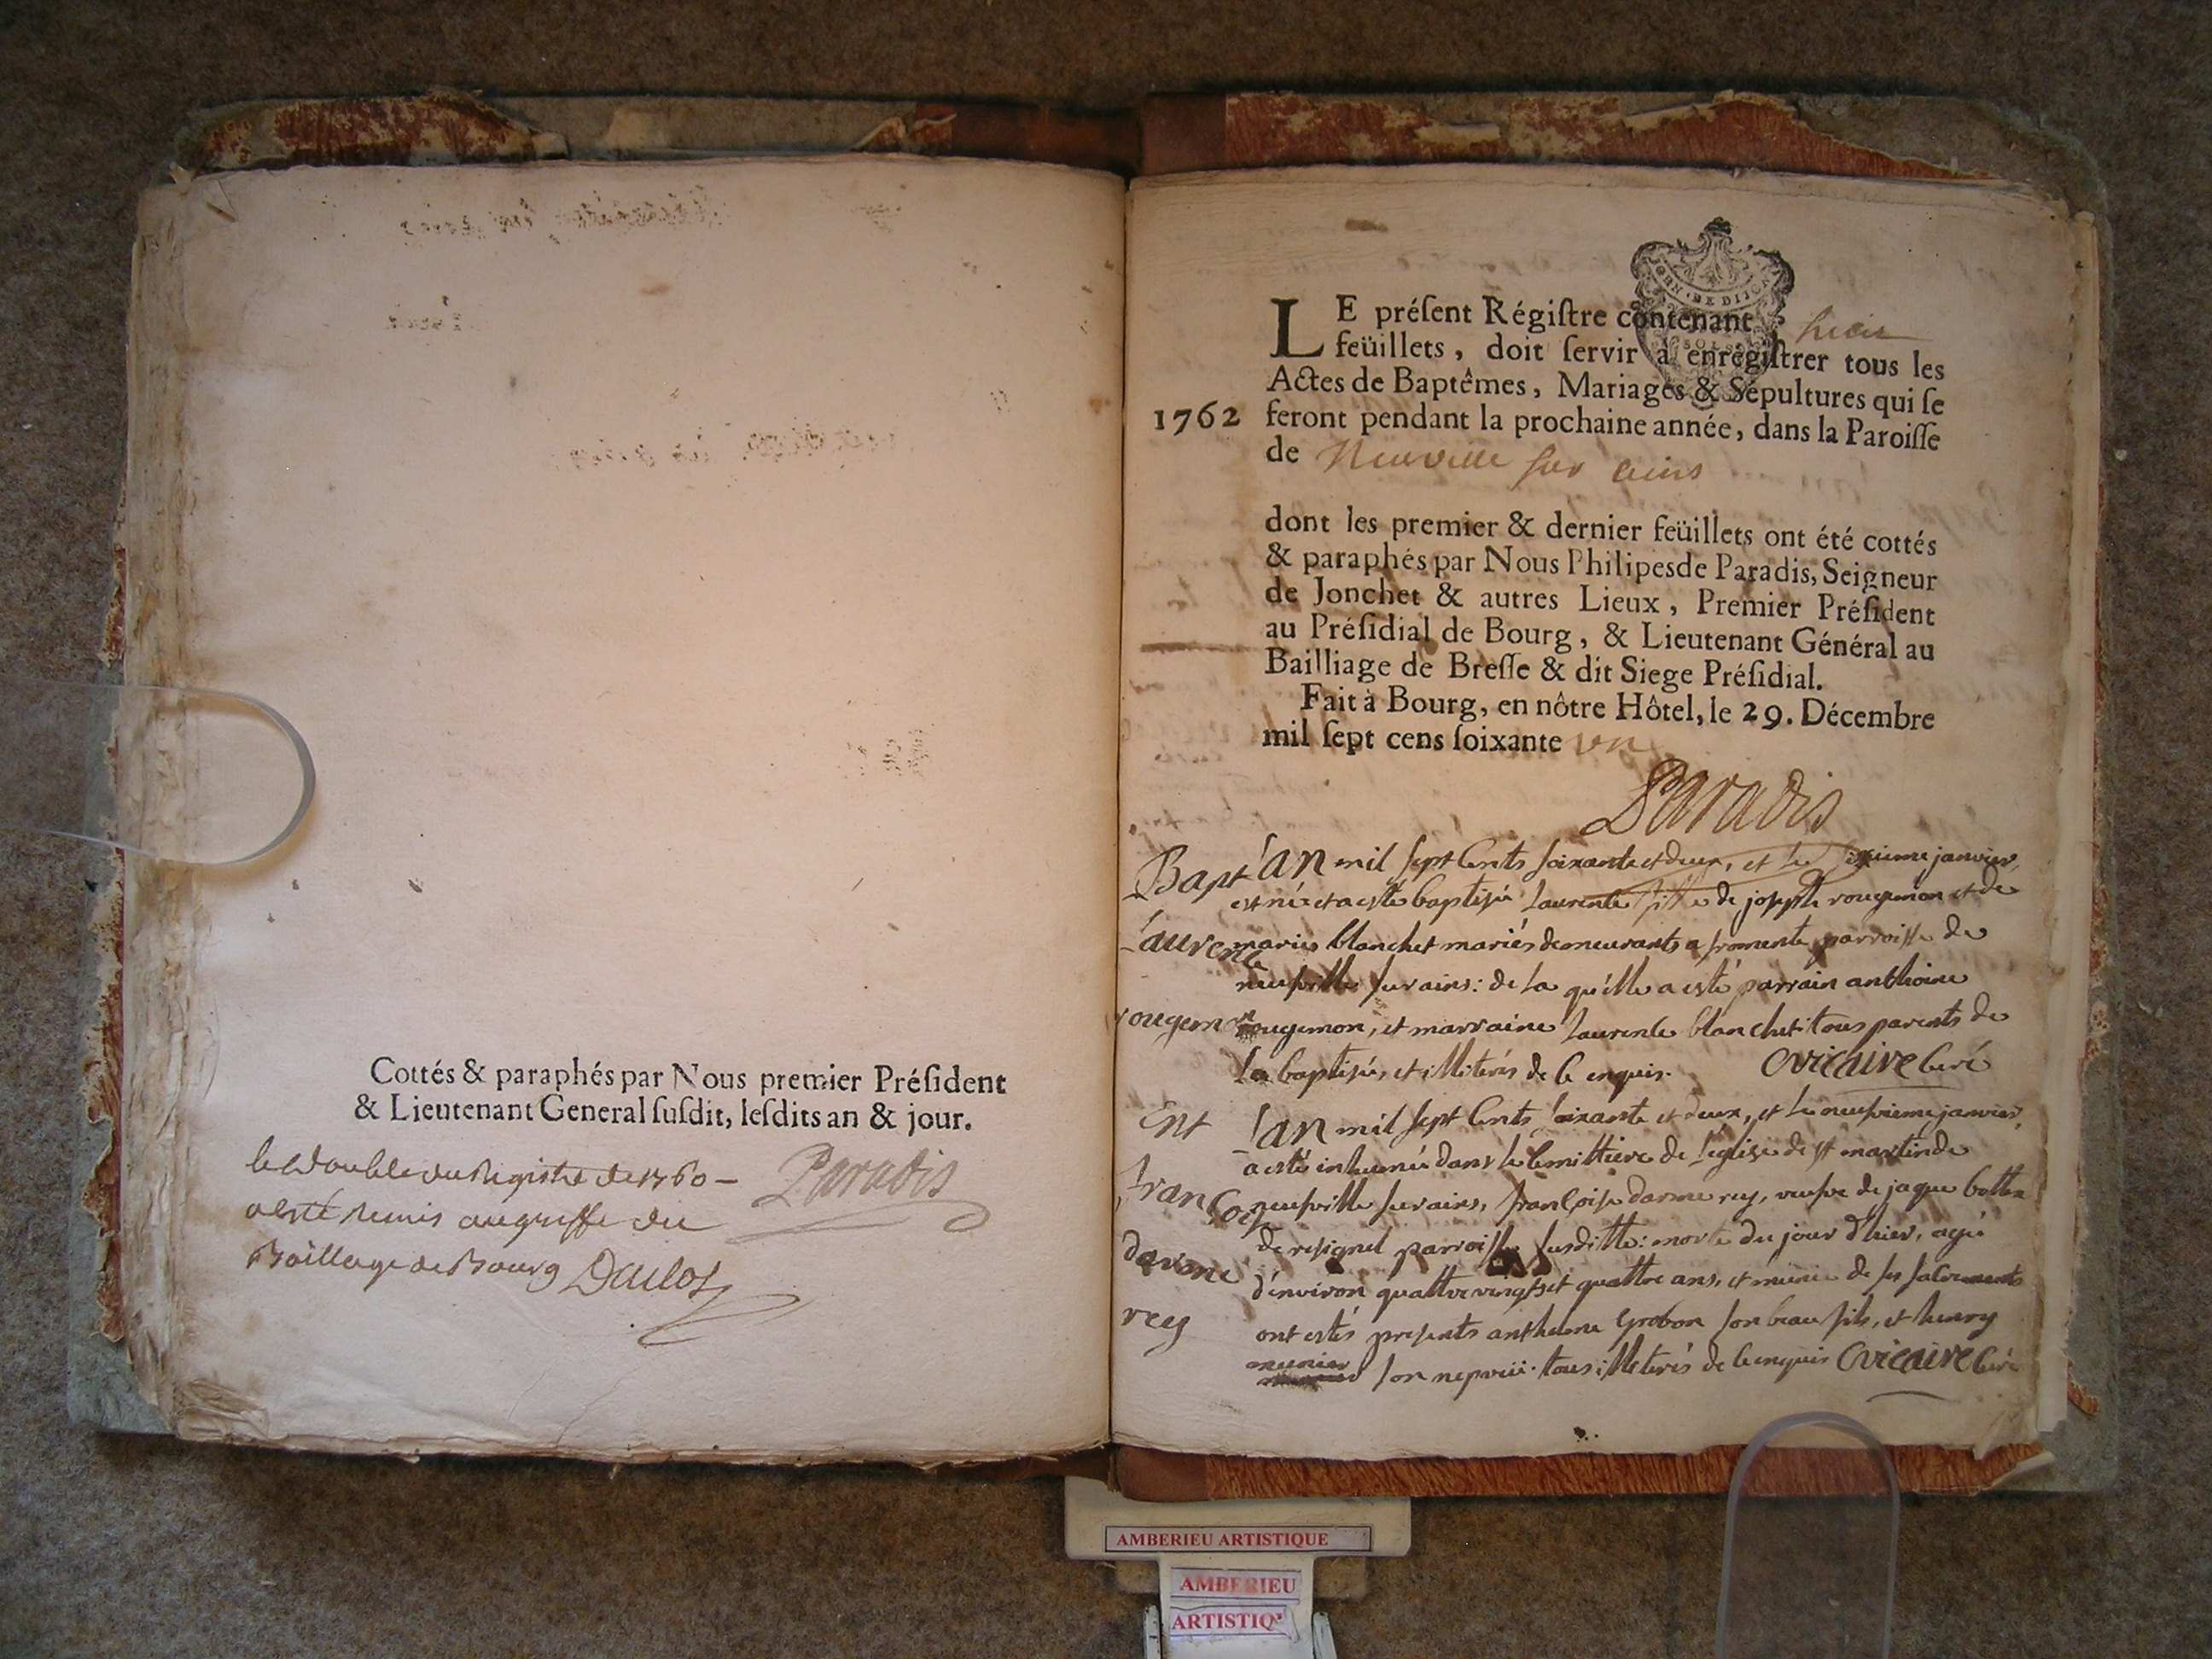 Cottés & paraphés par Nous premier Préſident
& Lieutenant General ſuſdit, leſdits an & jour.
le double du Registre de 1760 –
a esté remis au greffe du
Bailliage de Bourg
Paradis
LE préſent Régiſtre contenant huit
feüillets, doit ſervir à enregiſtrer tous les
Actes de Baptêmes, Mariages & Sépultures qui ſe
1762 feront pendant la prochaine année, dans la Paroiſſe
de Neuville sur ains
dont les premier & dernier feüillets ont été cottés
& paraphés par Nous Philipesde Paradis, Seigneur
de Jonchet & autres Lieux, Premier Préſident
au Préſidial de Bourg, & Lieutenant Général au
Bailliage de Breſſe & dit Siege Préſidial.
Fait à Bourg, en nôtre Hôtel, le 29. Décembre
mil ſept cens ſoixante un
Paradis
Bapt
Laurente
rougemon
L'an mil sept Cents soixante et deux, et le janvier,
est née et a esté baptisée Laurente fille de joseph rougemon et de
marie blanchet mariés demeurants a fromente parroisse de
neufville sur ains: de la quélle a esté parrain anthoine
rougemon, et marraine Laurente blanchet: tous parents de
la baptisée, et illiterés de ce enquis. Ovicaire Curé
Ent
françoise
darme
rey
L'an mil sept Cents soixante et deux, et le neufvieme janvier,
a estée inhumée dans le Cemittiere de l'église de st martin de
neufville sur ains, françoise darme rey, veufve de jaque
de resignel parroisse susditte: morte du jour d'hier, agée
d'environ quattre vingts et quattre ans, et munie de ses sacrements
ont estés presents anthelme grobon son beau fils, et henry
munier son nepveü. tous illeterés de ce enquis Ovicaire Curé
AMBERIEU ARTISTIQUE
AMBERIEU
ARTISTIQ